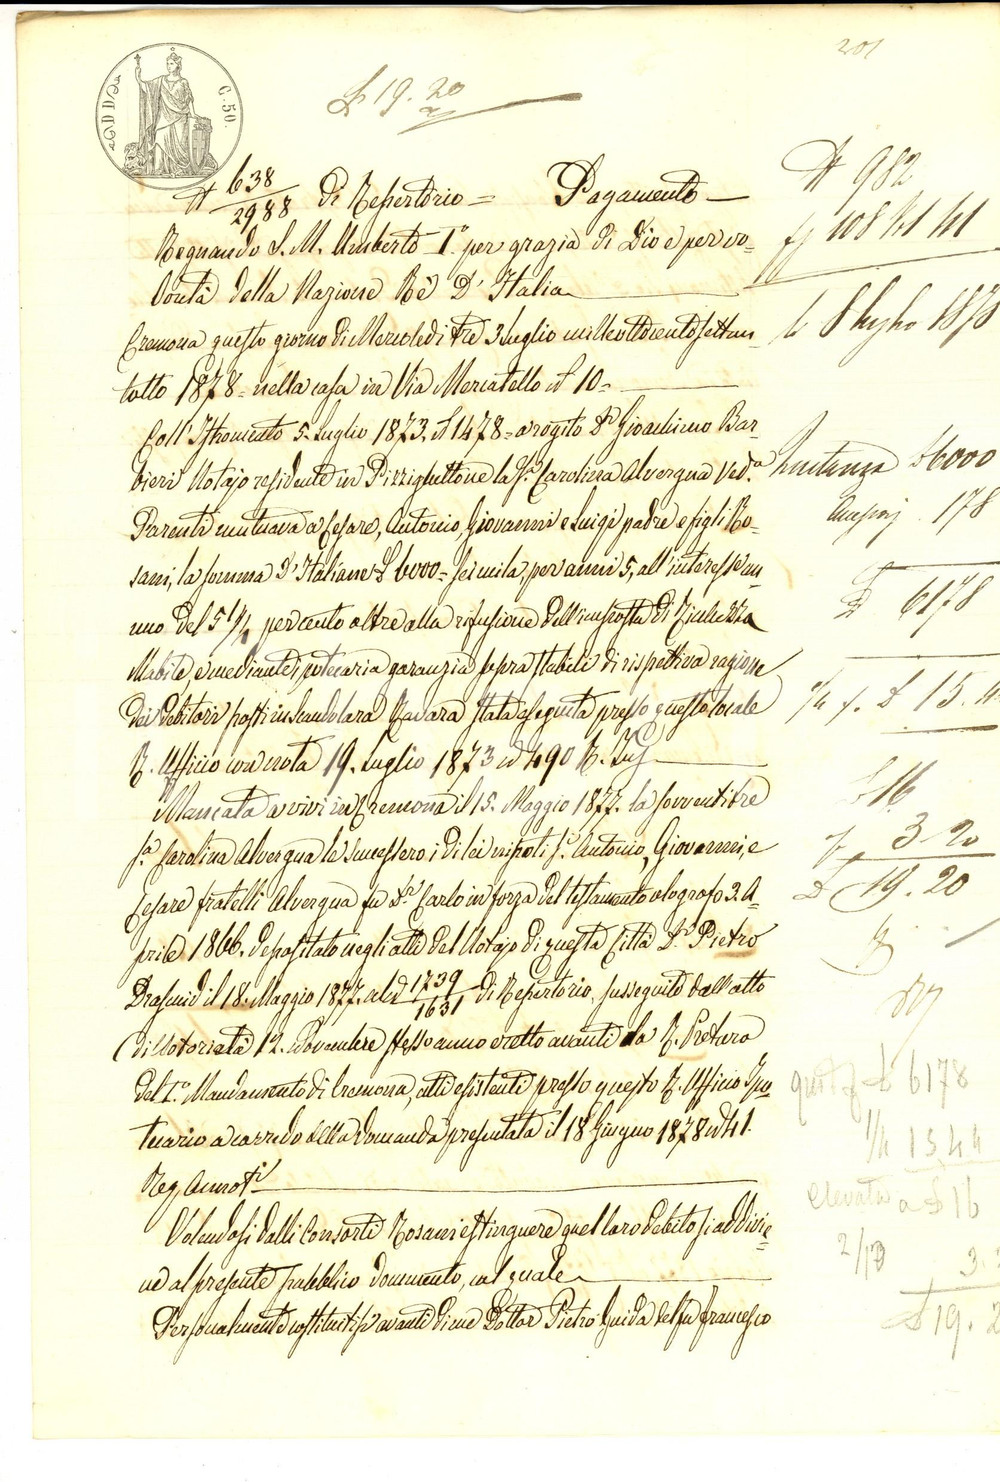 201
£ 19. 20
C. 50.
N° 638/2988 di Repertorio = Pagamento —
Regnando S. M. Umberto I° per grazia di Dio e per vo-
lontà della Nazione Rè D'Italia
Cremona questo giorno di Mercoledì tre 3 Luglio milleottocentosettan-
totto 1878 = nella casa in Via Mercatello N° 10 =
Coll' Istromento 5. Luglio 1873. N° 1478 = a rogito Dr Gioachimo Bar-
bieri Notajo residente in Pizzighettone la Sa. Carolina Alvergna Ved.a
Parenti mutuava a Cesare, Antonio, Giovanni e Luigi padre e figli Ro-
sani, la somma d'Italiane £ 6000 = seimila, per anni 5, all'interesse an-
nuo del 5 1/2 per cento oltre alla rifusione dell'imposta di Ricchezza
Mobile, e mediante ipotecaria garanzia sopra stabili di rispettiva ragione
dei Debitori posti in Scandolara Ravara stata eseguita presso questo locale
R. Ufficio con nota 19. Luglio 1873 N° 490 R. Ins
Mancata a vivi in Cremona il 15. Maggio 1877. la sovventrice
Sa. Carolina Alvergna le successero i di lei nipoti Sr. Antonio, Giovanni, e
Cesare fratelli Alvergna fu Dr Carlo in forza del testamento olografo 3. A-
prile 1866. depositato negli atti del Notajo di questa Città Dr. Pietro
il 18. Maggio 1877. al N° 1739/1631 di Repertorio, susseguito dall'atto
di Notorietà 12. Novembre stesso anno eretto avanti la R. Pretura
del I.° Mandamento di Cremona, atti esistenti presso questo R. Ufficio Ipo-
tecario a corredo della domanda presentata il 18 Giugno 1878 N° 41.
Reg. Annot.i
Volendosi dalli Consorti Rosani estinguere quel loro debito si addivie-
ne al presente pubblico documento, col quale
Personalmente costituitisi avanti di me Dottor Pietro Guida del fu Francesco
N° 982
108 N° 41
li 8 luglio 1878
Quitanza £ 6000
178
£ 6178
1/4 £ 15. 4
£ 16
3 20
£ 19. 20
£ 6178
1/4 15 44
elevata a £ 16
2/10 3. 2
£ 19. 2